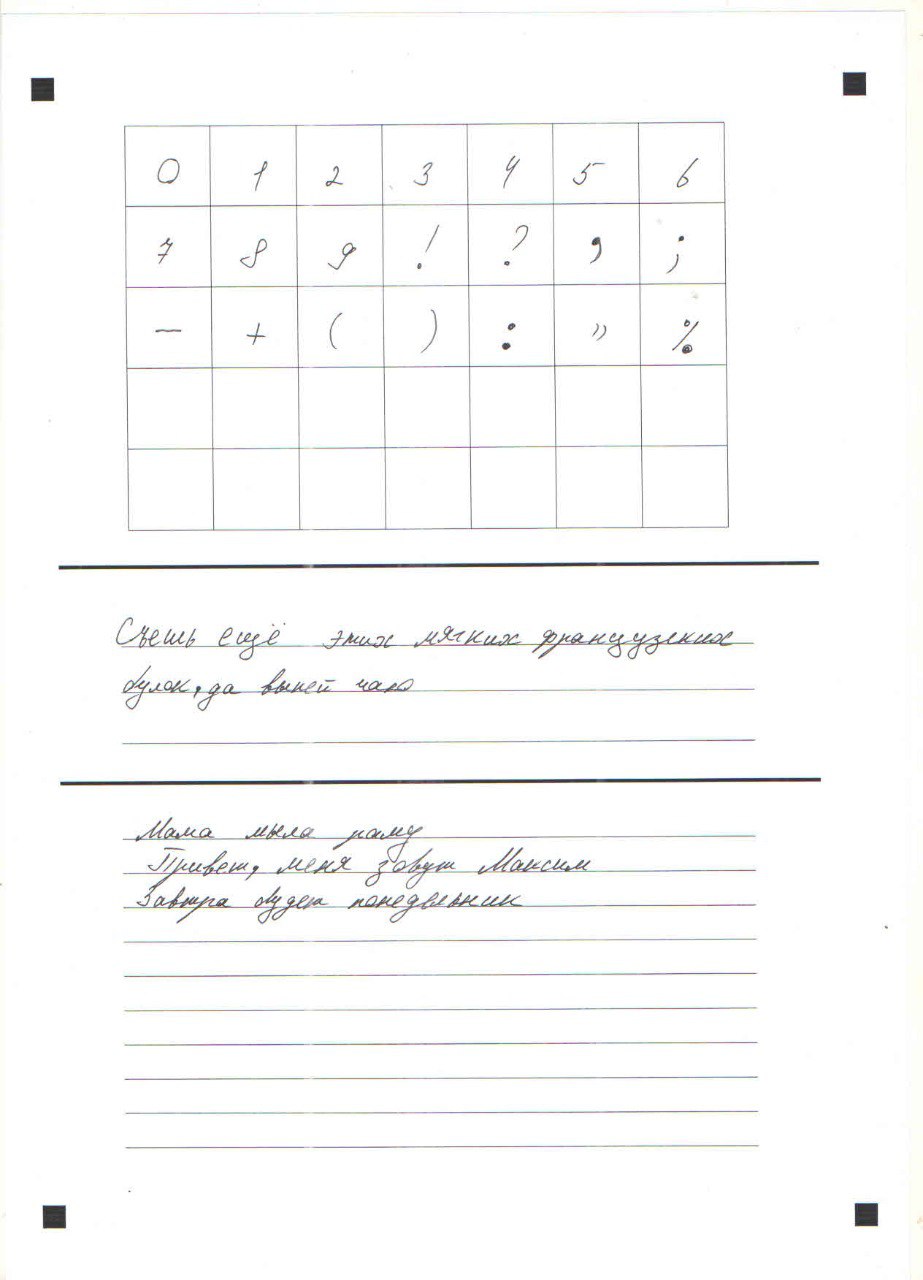 0 1 2 3 4 5 6
7 8 9 ! ? , ;
— + ( ) : " %
Съешь ещё этих мягких французских
булок, да выпей чаю
Мама мыла раму
Привет, меня зовут Максим
Завтра будет понедельник